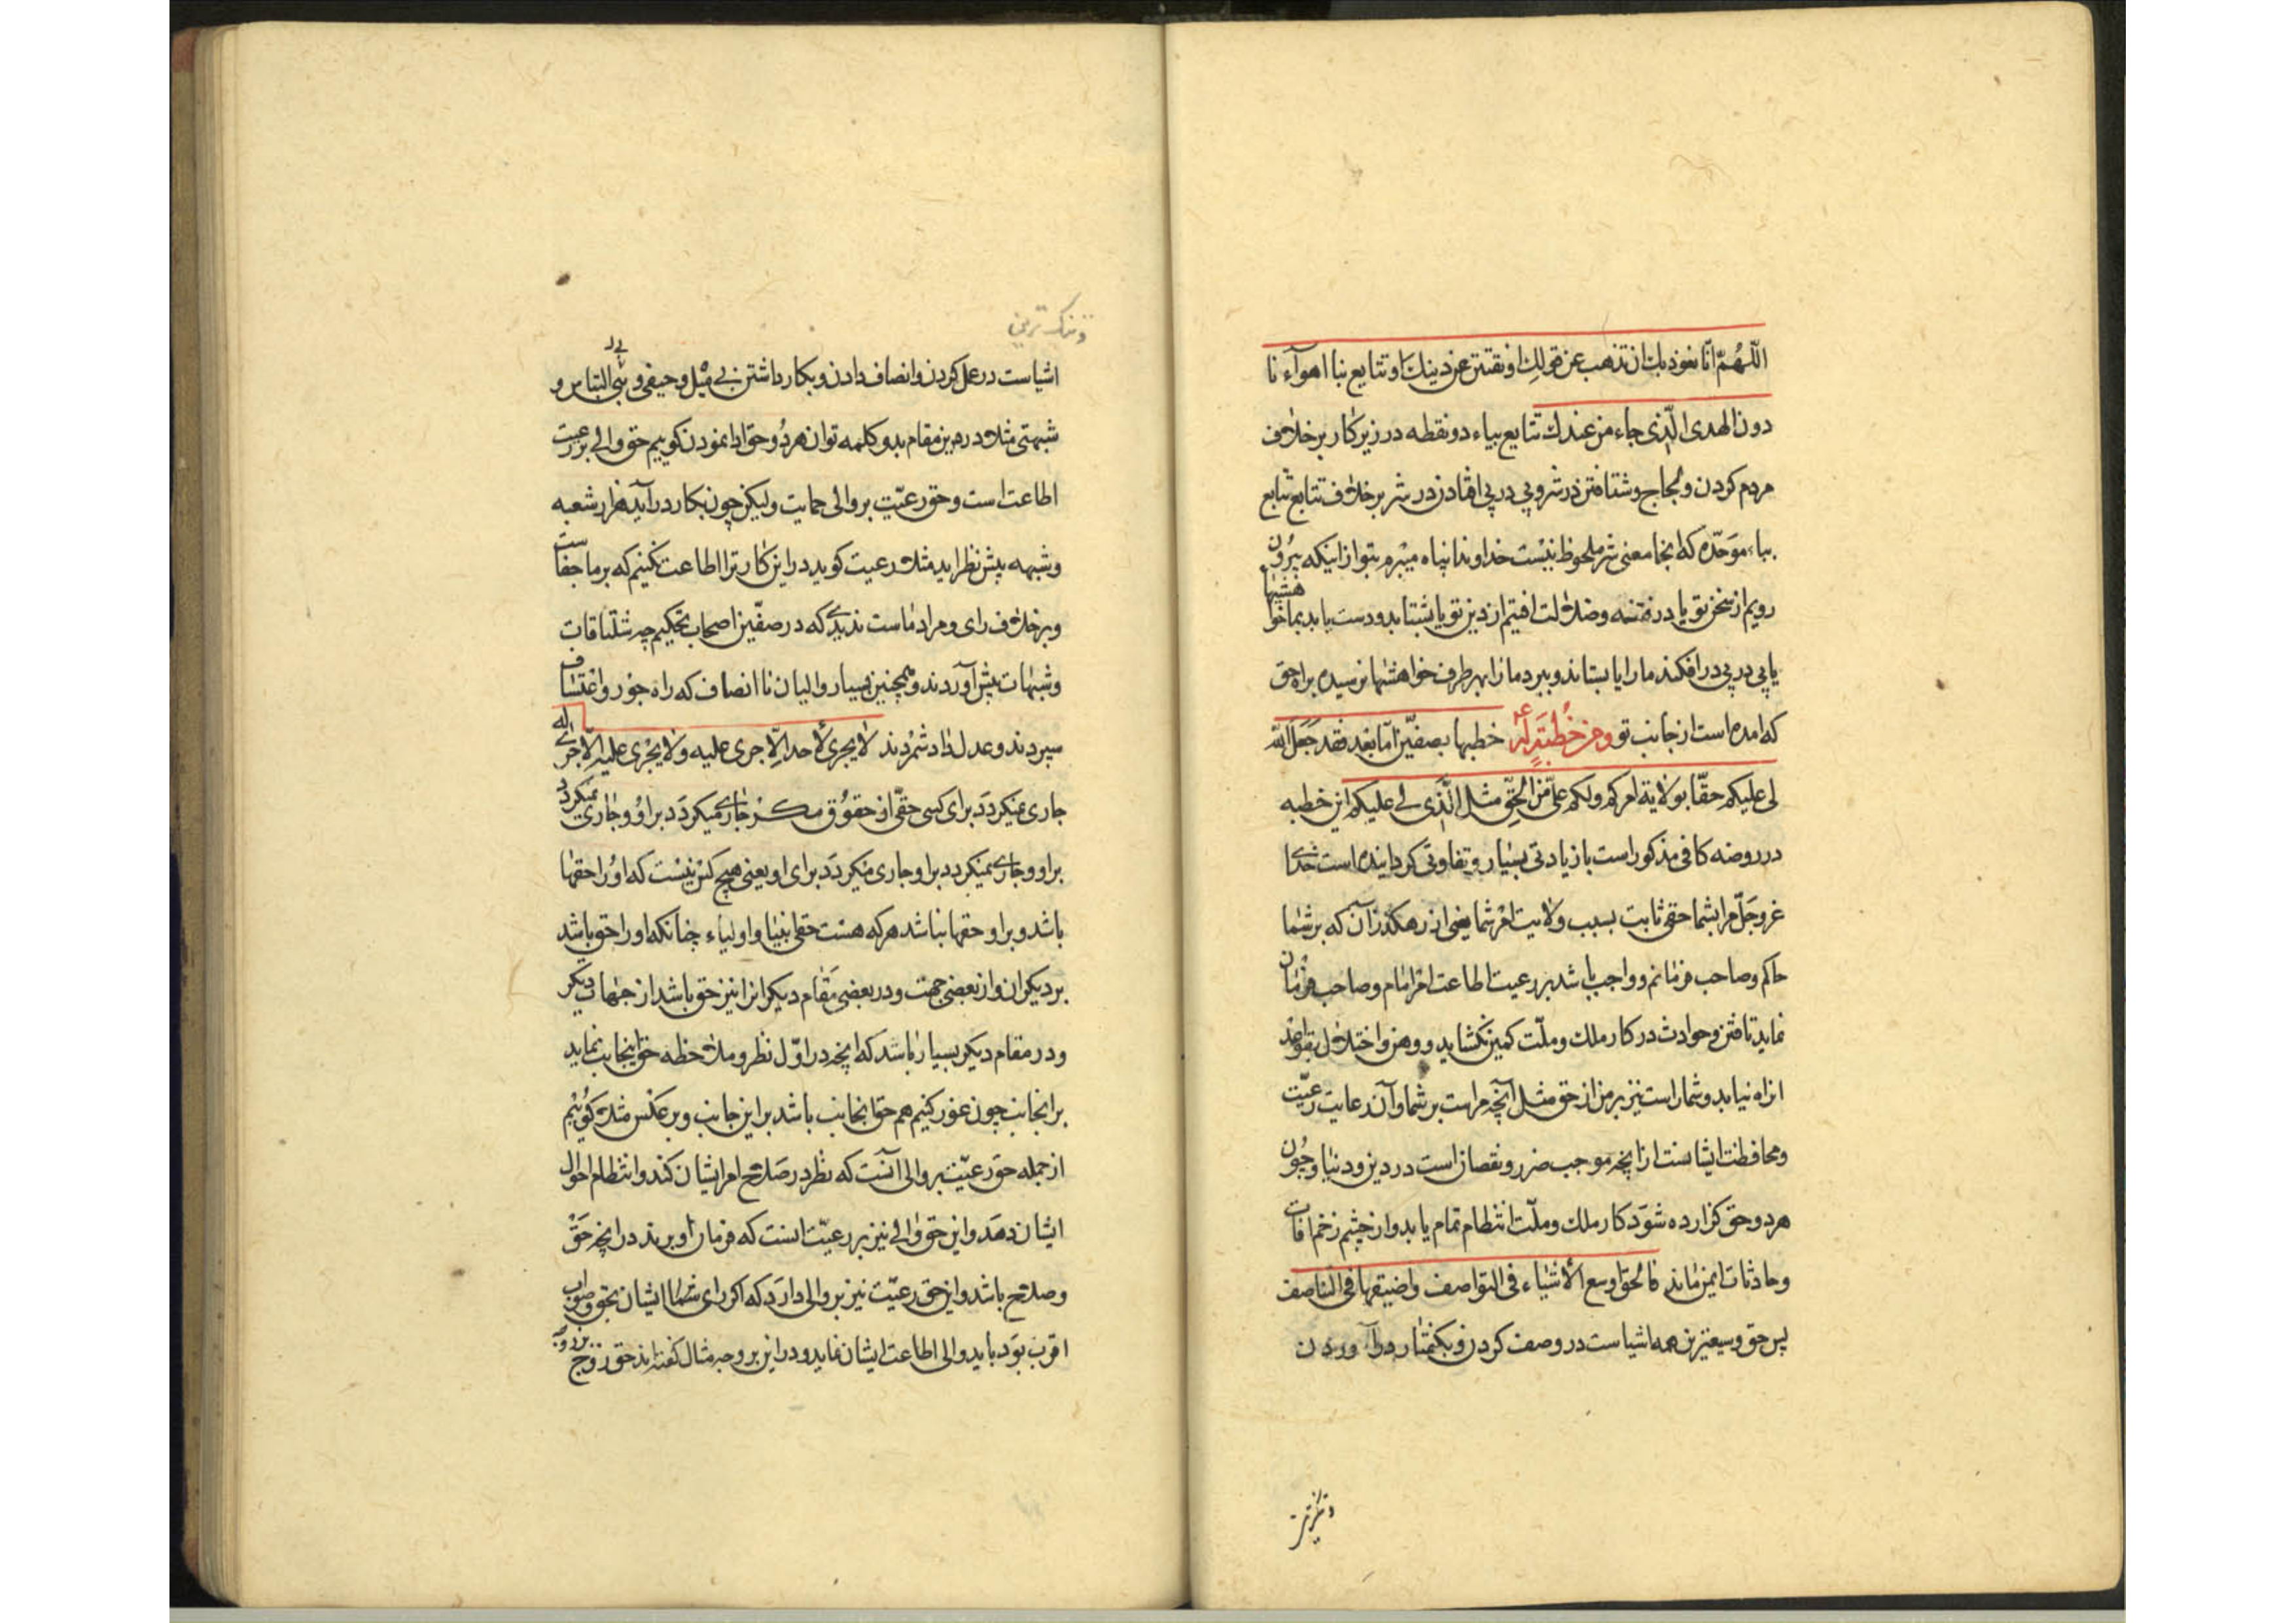 اللّهُمّ انّا نعوذ بك ان نذهب عن قولك او نفتتن عن دينك او تتايع بنا اهوآءنا
دون الهدى الّذى جاء من عندك تتايع بياء دو نقطه در زير كار بر خلاف
مردم كردن و لجاج و شتافتن در شر و پى در پى افتادن در شر بر خلاف تتابع تتابع
بباء موَحّده كه انجا معنى شر ملحوظ نيْست خداوندا پناه ميْبرم بتو از اينكه بيرُون
رويم از سخن تو يا در فتنه و ضلالت افتيم از دين تو يا بشتابد و دست يابد بما خواهشهاا
يا پى در پى در افكند ما را يا بستاند و ببرد ما را بهر طرف خواهشها نرسيده براه حق
كه امده است از جانب تو ومن خُطبَةٍ لَهُ ع خطبها بصفّين امّا بعد فقد جَعَلَ اللّه
لى عليكم حقّا بولاية امركم ولكم علىّ من الحقّ مثل الّذى لى عليكم اين خطبه
در روضه كافى مذكور است با زيادتى بسيار و تفاوتى كردانيده است خداى
عزوجلّ مرا بشما حقى ثابت بسبب ولايت امْر شما يعنى از رهكذر آن كه بر شما
حاكم و صاحب فرمانم و واجب باشد بر رعيت اطاعت امر امام و صاحب فرمان
نمايد تا فتن و حوادث در كار ملك و ملّت كمين نكشايد و وهن و اختلال بقواعد
انراه نيابد و شما راست نيز بر من از حق مثل آنچه مراست بر شما و آن رعايت رعيّت
و محافظت ايشانست از انچه موجب ضرر و نقصان است در دين و دنيا و چُون
هر دو حق كزارده شوَد كار ملك و ملّت انتظام تمام يابد و از چشم زخم افات
و حادثات ايمن ماند فالحق اوسع الأشياء فى التواصف واضيقها فى التناصف
پس حق وسيعترين همه اشياست در وصف كردن و بكفتار در آوردن
و تنكترين
و تنك ترين
اشياست در عمل كردن و انصاف دادن و بكار داشتن بى ميْل و حيفى و بى التباس و
شبهتى مثلا در همين مقام بدو كلمه توان هر دُو حق ادا نمودن كوييم حق والى بر رعيت
اطاعت است و حق رعيّت بر والى حمايت وليكن چون بكار در آيد هزار شعبه
و شبهه پيش نظر ايد مثلا رعيت كويد در اين كار ترا اطاعت نكنيم كه بر ما جفاست
و بر خلاف راى و مراد ماست نديدى كه در صفّين اصحاب تحكيم چه شلتاقات
و شبهات پيش آوردند و همچنين بسيار واليان نا انصاف كه راه جور و اعتساف
سپردند و عدل و داد شمرْدند لا يجرى لأحد الّا جرى عليه ولا يجْرى عليه الّا جرى له
جارى نميكردَد براى كسى حقّى از حقوُق مكر جارى ميكردَد بر او و جارى نميكردد
بر او و جارى نميكردد بر او جارى ميكردَد براى او يعنى هيچ كس نيْست كه اوُ را حقها
باشد و بر او حقها نباشد هر كه هست حتى انبيا و اولياء چنانكه او را حق باشد
بر ديكران و از بعضى جهت و در بعضى مَقام ديكرانرا نيز حق باشد از جهات ديكر
و در مقام ديكر بسيار باشد كه انچه در اوّل نظر و ملاحظه حق اينجانب نمايد
بر انجانب چون غور كنيم هم حق انجانب باشد بر اين جانب و بر عكس مثلا كوُئيم
از جمله حق رعيّت بر والى آنست كه نظر در صَلاح امر ايشان كند و انتظام احوال
ايشان دهَد و اين حق والى نيز بر رعيّت است كه فرمان او برند در انچه حَقّ
و صلاح باشد و اين حق رعيّت نيز بر والى دارَد كه اكر راى شما ايشان بحق و صواب
اقرب بوَد بايد والى اطاعت ايشان نمايد و در اين بر وجه مثال كفته اند حق زوج